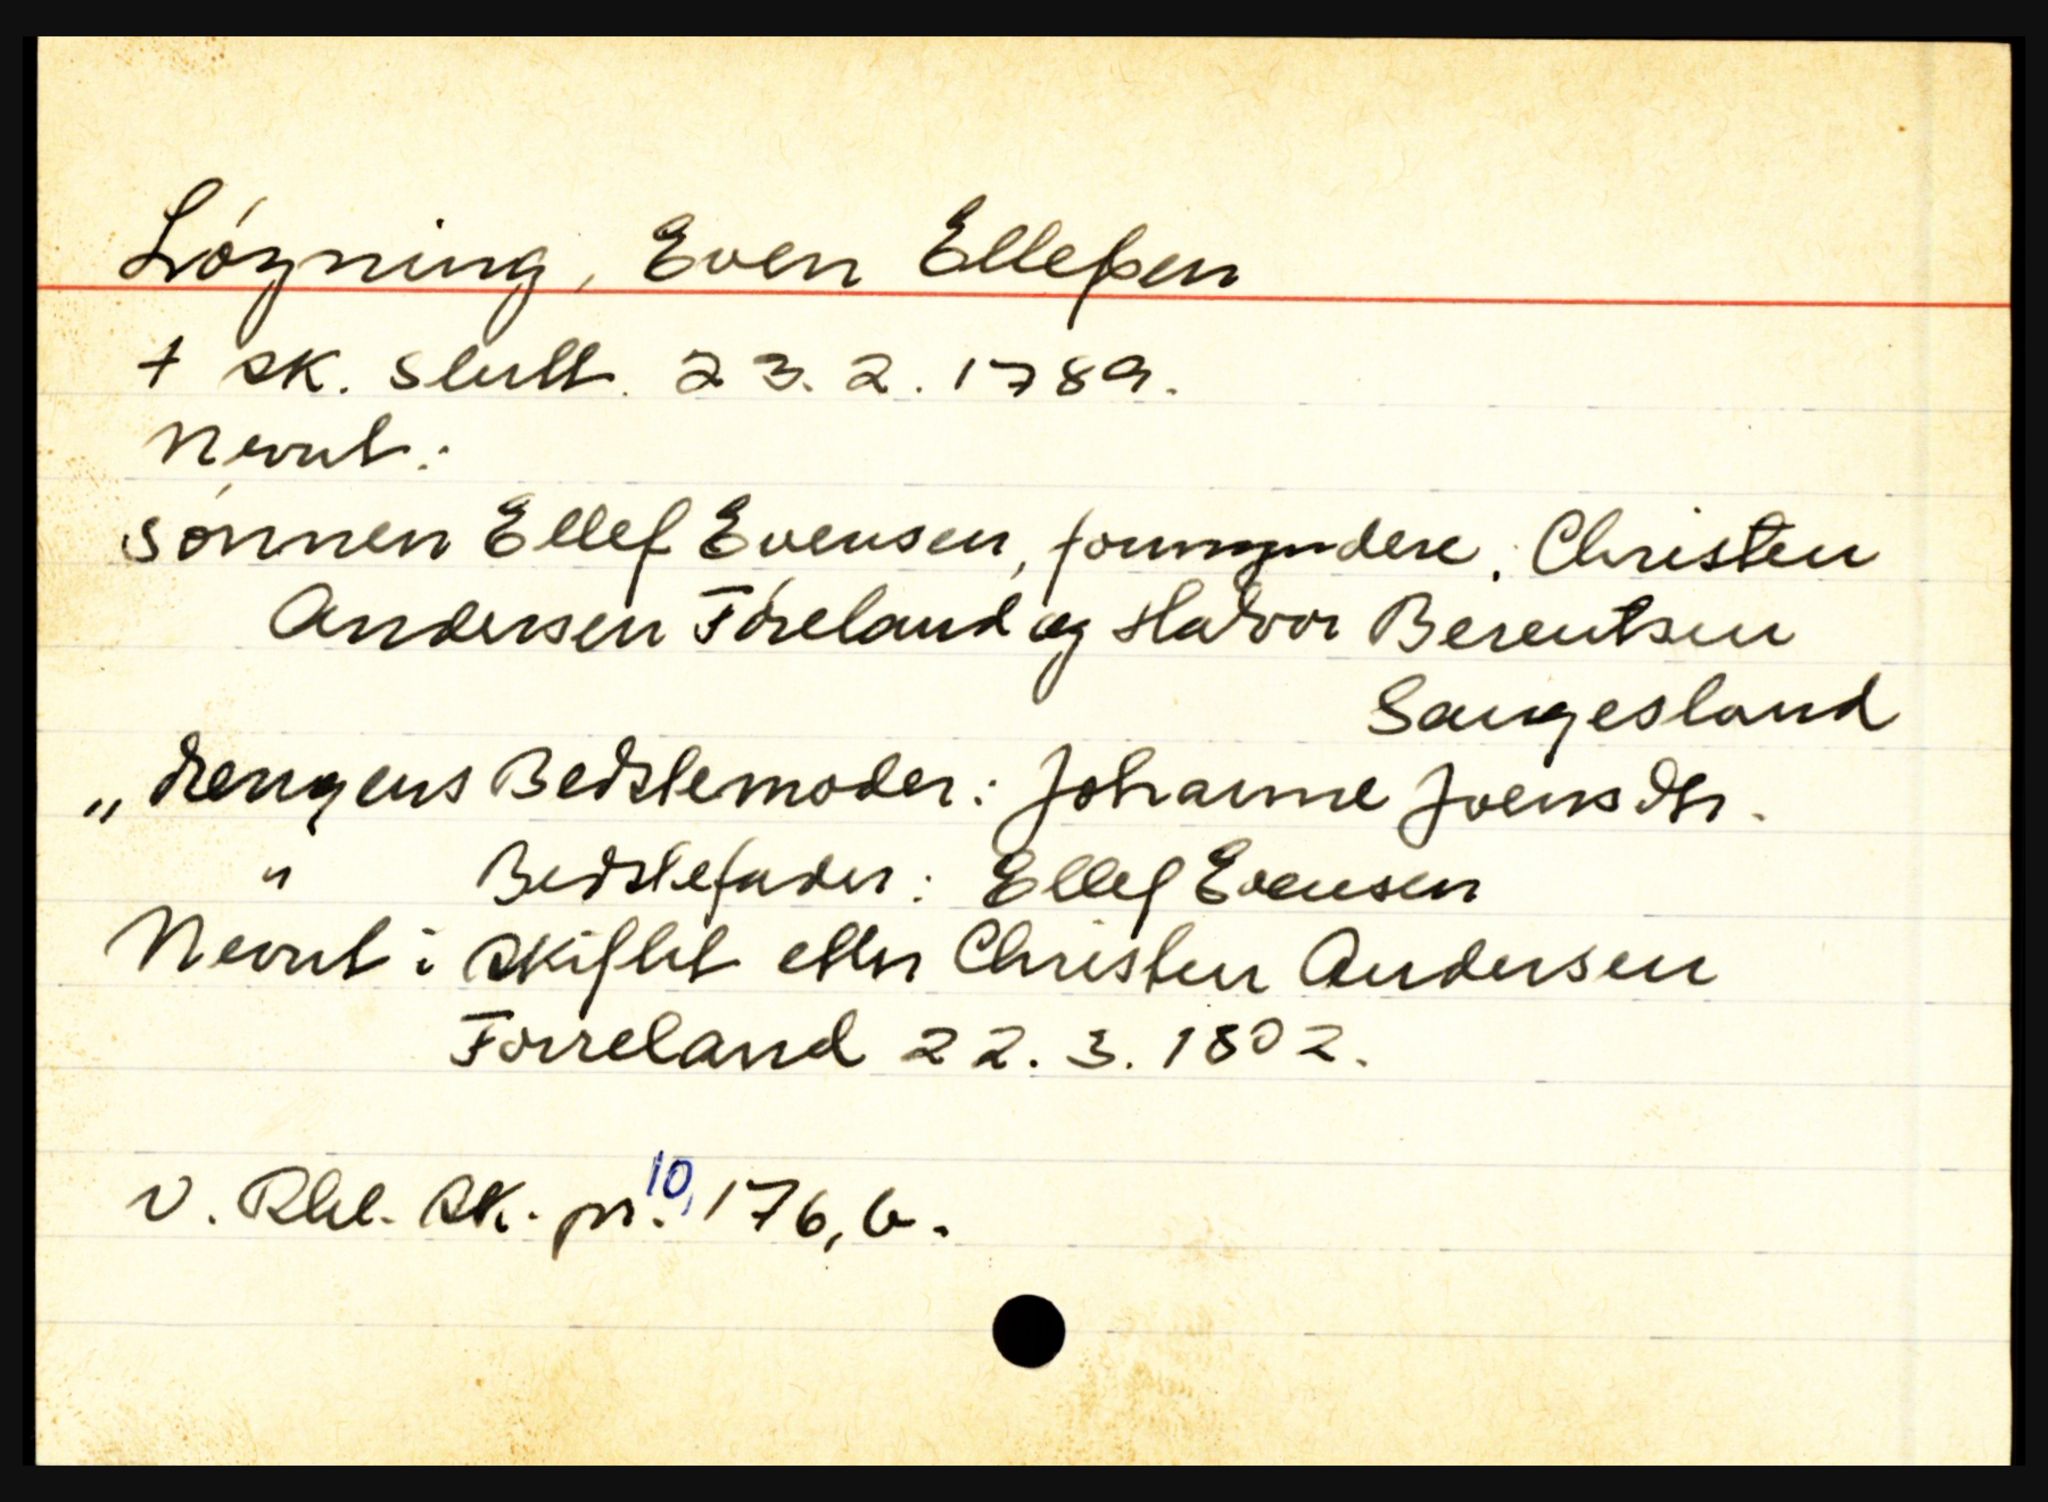 Løyning, Even Ellefsen
† sk. slutt. 23.2.1789.
Nevnt:
sønnen Ellef Evensen, formyndere: Christen
Andersen Føreland og Halvor Berentsen
Saugesland
„drengens Bedstemoder: Johanne Joensdtr.
" Bedstefader: Ellef Evensen
Nevnt i skiftet etter Christen Andersen
Førreland 22.3.1802.
V. Rbl. sk. pr. 10, 176, b.